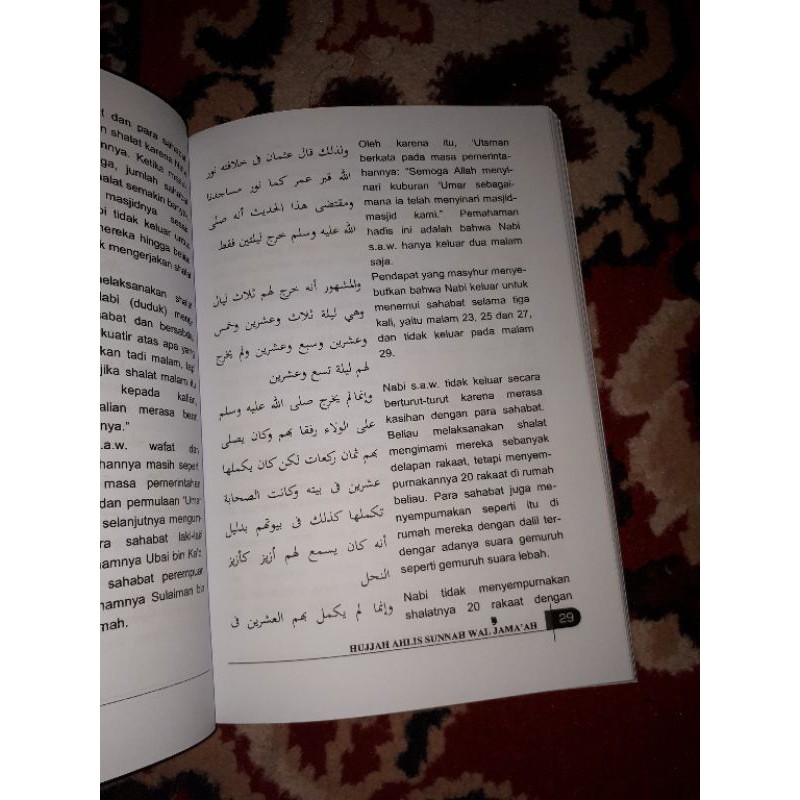 t dan para sahabat
n shalat karena
nnya. Ketika
ga, jumlah sahabat
alat semakin banyak
masjidnya sesak
bi tidak keluar untuk
mereka hingga
k mengerjakan shalat
melaksanakan shalat
Nabi (duduk)
abat dan bersabda
kuatir atas apa yang
kan tadi malam, tapi
jika shalat malam itu
kepada kalian,
alian merasa berat
nya."
.a.w. wafat dan
hannya masih seperti
masa pemerintahan
dan permulaan 'Umar
selanjutnya mengum-
ra sahabat laki-laki
namnya Ubai bin Ka'b
sahabat perempuan
namnya Sulaiman bin
mah.
ولذلك قال عثمان في خلافته نور
الله قبر عمر كما نور مساجدنا
ومقتضى هذا الحديث أنه صلى
الله عليه وسلم خرج ليلتين فقط
والمشهور أنه خرج لهم ثلاث ليال
وهي ليلة ثلاث وعشرين وخمس
وعشرين وسبع وعشرين ولم يخرج
لهم ليلة تسع وعشرين
وإنما لم يخرج صلى الله عليه وسلم
على الولاء رفقا بهم وكان يصلى
بهم ثمان ركعات لكن كان يكملها
عشرين في بيته وكانت الصحابة
تكملها كذلك في بيوتهم بدليل
أنه كان يسمع لهم أزيز كأزيز
النحل
وإنما لم يكمل بهم العشرين في
Oleh karena itu, 'Utsman
berkata pada masa pemerinta-
hannya: "Semoga Allah menyi-
nari kuburan 'Umar sebagai-
mana ia telah menyinari masjid-
masjid kami." Pemahaman
hadis ini adalah bahwa Nabi
s.a.w. hanya keluar dua malam
saja.
Pendapat yang masyhur menye-
butkan bahwa Nabi keluar untuk
menemui sahabat selama tiga
kali, yaitu malam 23, 25 dan 27,
dan tidak keluar pada malam
29.
Nabi s.a.w. tidak keluar secara
berturut-turut karena merasa
kasihan dengan para sahabat.
Beliau melaksanakan shalat
mengimami mereka sebanyak
delapan rakaat, tetapi menyem-
purnakannya 20 rakaat di rumah
beliau. Para sahabat juga me-
nyempurnakan seperti itu di
rumah mereka dengan dalil ter-
dengar adanya suara gemuruh
seperti gemuruh suara lebah.
Nabi tidak menyempurnakan
shalatnya 20 rakaat dengan
HUJJAH AHLIS SUNNAH WAL JAMA'AH
29